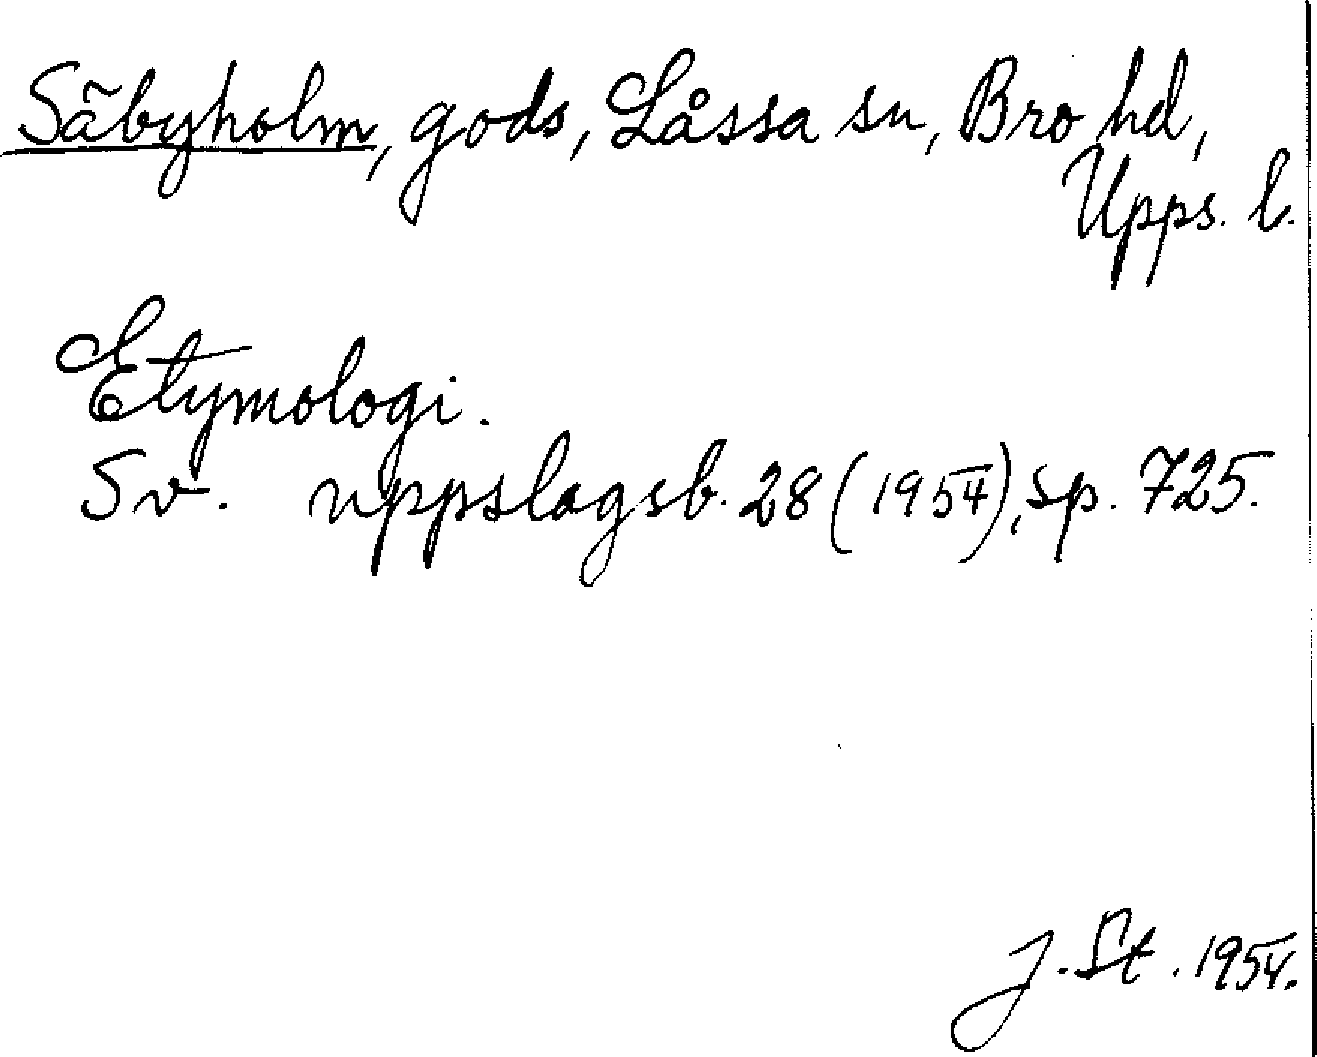 Säbyholm, gods, Låssa sn, Bro hd,
Upps. l.
Etymologi.
Sv. uppslagsb. 28 (1954), sp. 725.
J. St. 1954.